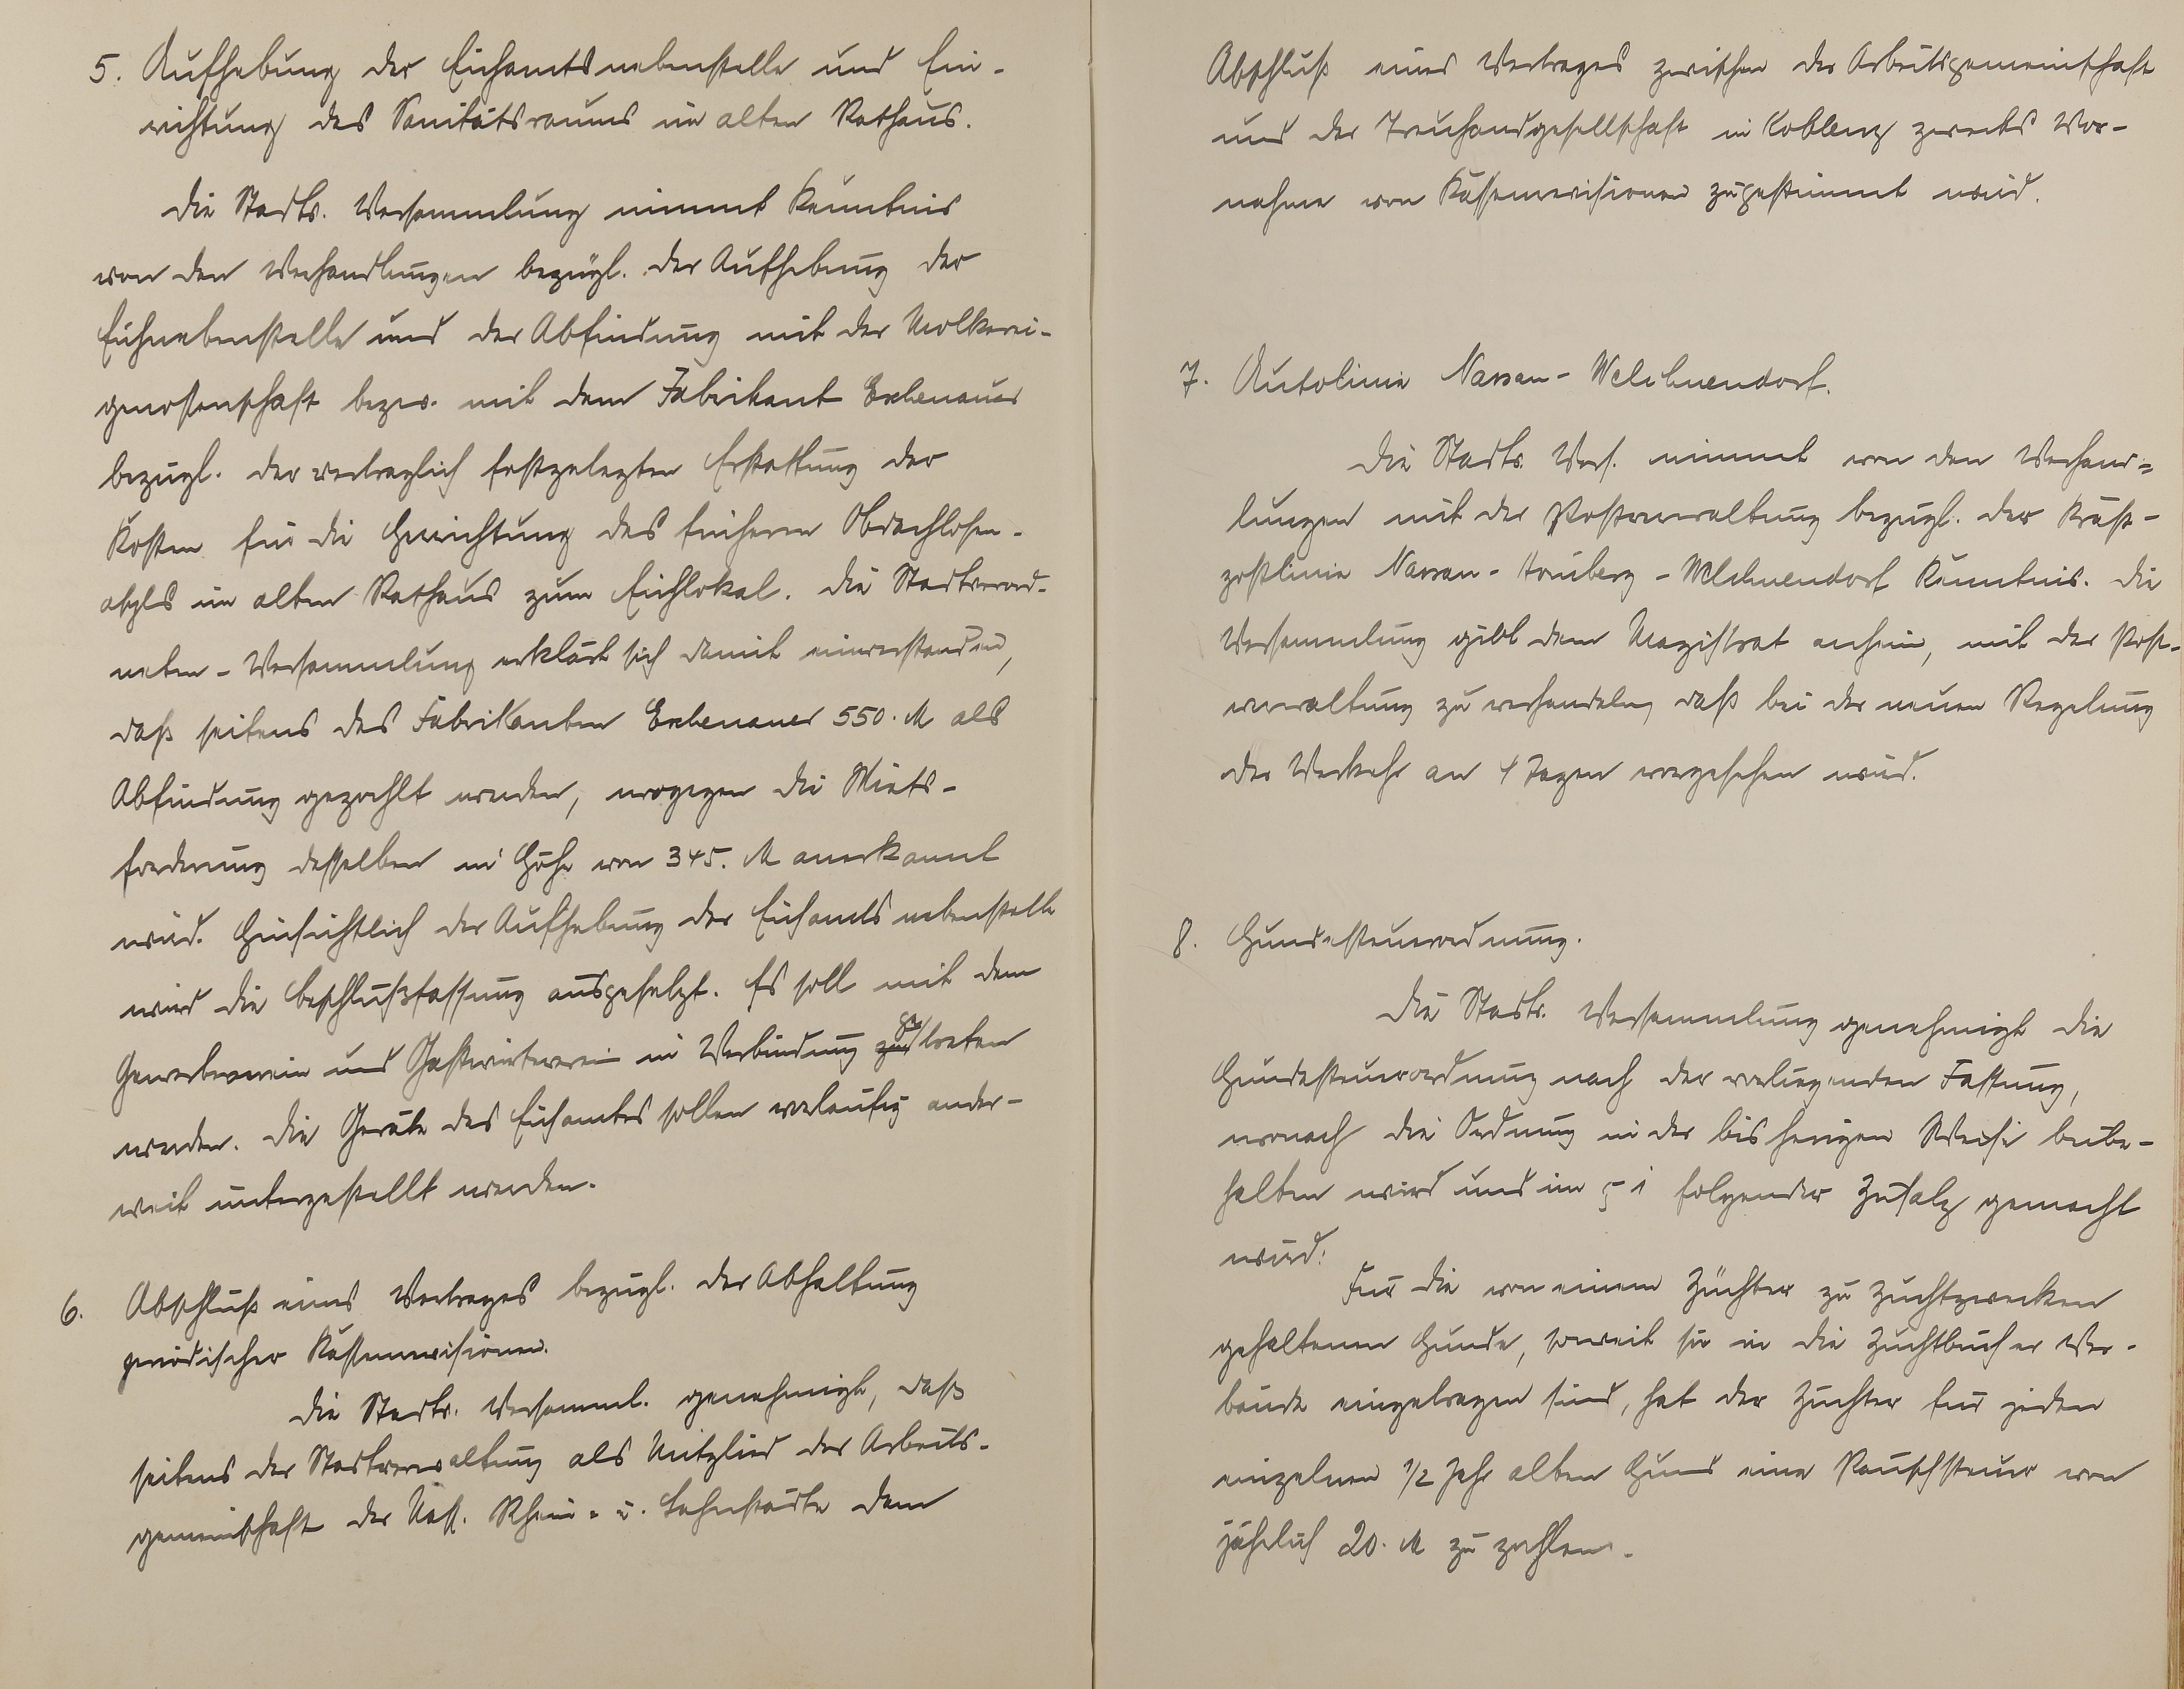 5. Aufhebung der Eichamtsnebenstelle und Ein-
richtung des Sanitätsraums im alten Rathaus.
Die Stadtv. Versammlung nimmt Kenntnis
von den Verhandlungen bezügl. der Aufhebung der
Eichnebenstelle und der Abfindung mit der Molkerei-
genossenschaft bezw. mit dem Fabrikant Exbenauer
bezügl. der vertraglich festgelegten Erstattung der
Kosten für die Herrichtung des früheren Obdachlosen-
asyls im alten Rathaus zum Eichlokal. Die Stadtverord-
neten-Versammlung erklärt sich damit einverstanden,
daß seitens des Fabrikanten Exbenauer 550. M als
Abfindung gezahlt werden, wogegen die Miets-
forderung desselben in Höhe von 345. M anerkannt
wird. Hinsichtlich der Aufhebung der Eichamtsnebenstelle
wird die Beschlußfassung ausgesetzt. Es soll mit dem
Gewerbeverein und Gastwirteverein in Verbindung ge
treten
werden. Die Geräte des Eichamtes sollen vorläufig ander-
weit untergestellt werden.
6. Abschluß eines Vertrages bezügl. der Abhaltung
periodischer Kassenrevisionen.
Die Stadtv. Versamml. genehmigt, daß
seitens der Stadtverwaltung als Mitglied der Arbeits-
gemeinschaft der Nass. Rhein- u. Lahnstädte dem
Abschluß eines Vertrages zwischen der Arbeitsgemeinschaft
und der Treuhandgesellschaft in Koblenz zwecks Vor-
nahme von Kassenrevisionen zugestimmt wird.
7. Autolinie Nassau-Welchnendorf.
Die Stadtv. Vers. nimmt von den Verhand-
lungen mit der Postverwaltung bezügl. der Kraft-
postlinie Nassau-Homberg-Welchnendorf Kenntnis. Die
Versammlung gibt dem Magistrat anheim, mit der Post-
verwaltung zu verhandeln, daß bei der neuen Regelung
der Verkehr an 4 Tagen vorgesehen wird.
8. Hundesteuerordnung.
Die Stadtv. Versammlung genehmigt die
Hundesteuerordnung nach der vorliegenden Fassung,
wonach die Ordnung in der bisherigen Weise beibe-
halten wird und im § 1 folgender Zusatz gemacht
wird:
Für die von einem Züchter zu Zuchtzwecken
gehaltenen Hunde, soweit sie in die Zuchtbücher Ver-
bände eingetragen sind, hat der Züchter für jeden
einzelnen 1/2 Jahr alten Hund eine Pauschsteuer von
jährlich 20. M zu zahlen.